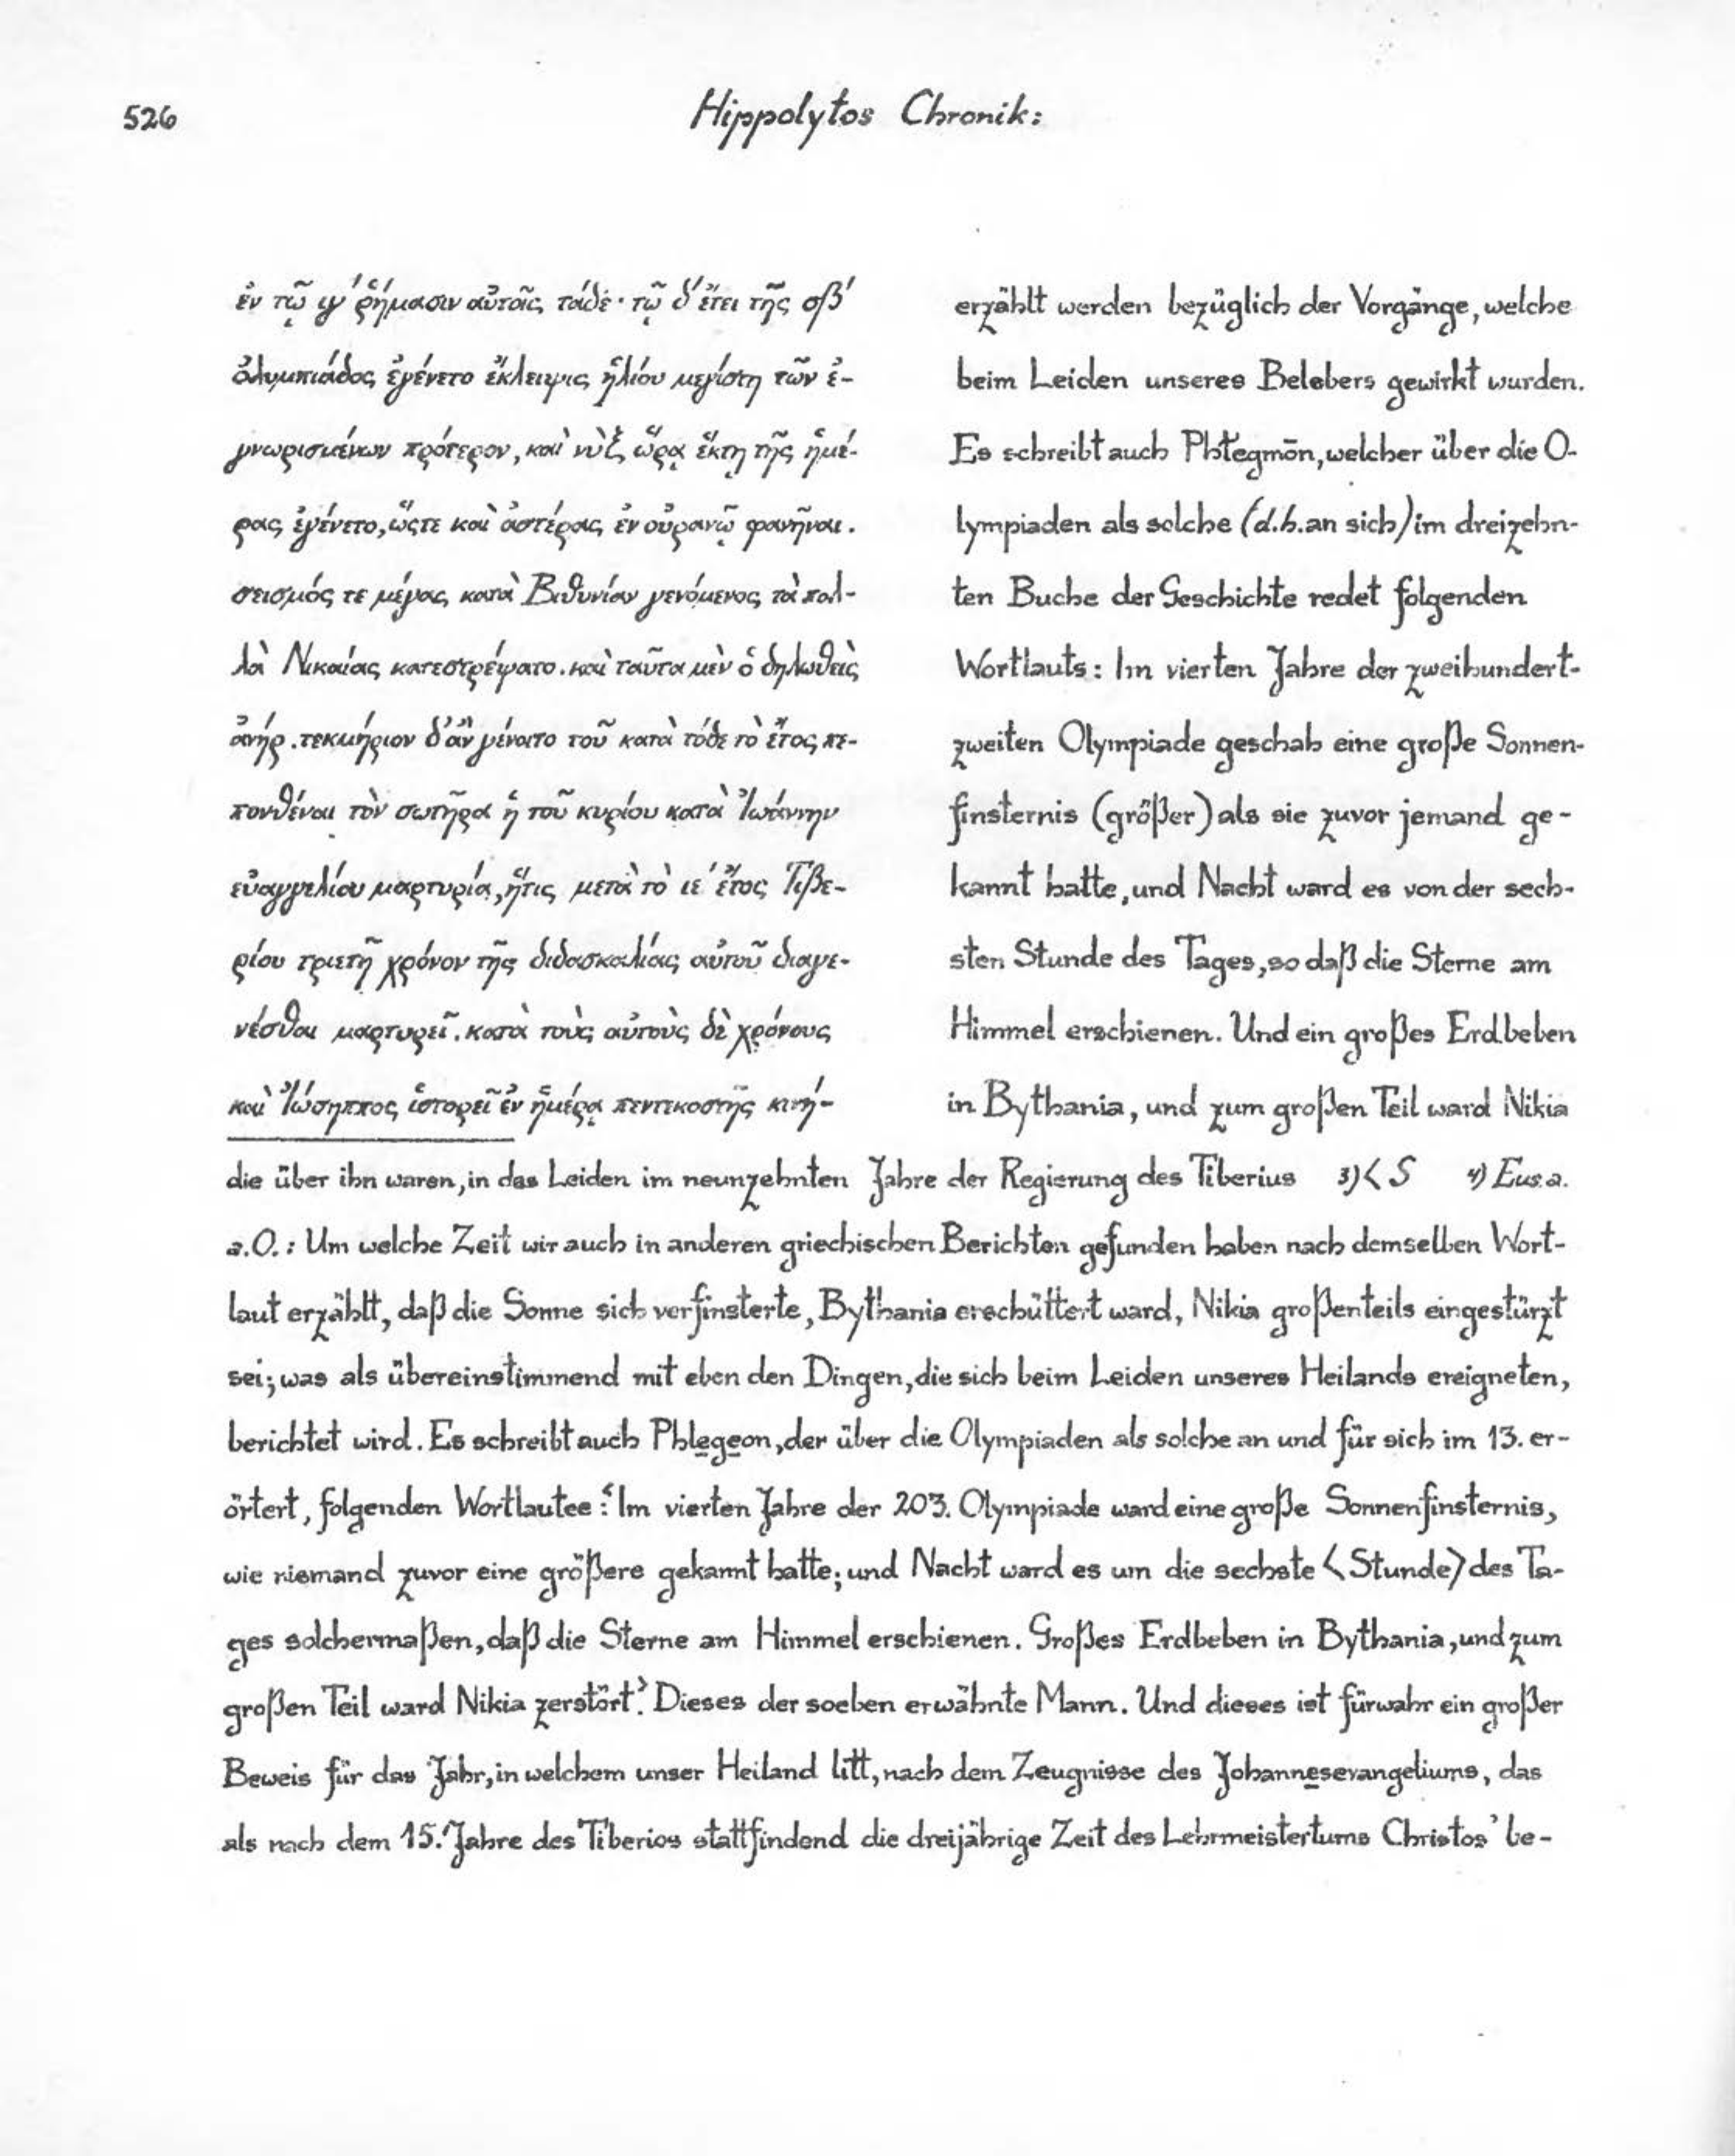 526
Hippolytos Chronik:
ἐν τῷ ιγ' ῥήμασιν αὐτοῖς τάδε· τῷ δ' ἔτει τῆς σβ'
ὀλυμπιάδος ἐγένετο ἔκλειψις ἡλίου μεγίστη τῶν ἐ-
γνωρισμένων πρότερον, καὶ νὺξ ὥρᾳ ἕκτῃ τῆς ἡμέ-
ρας ἐγένετο, ὥςτε καὶ ἀστέρας ἐν οὐρανῷ φανῆναι.
σεισμός τε μέγας κατὰ Βιθυνίαν γενόμενος τὰ πολ-
λὰ Νικαίας κατεστρέψατο. καὶ ταῦτα μὲν ὁ δηλωθεὶς
ἀνήρ. τεκμήριον δ' ἂν γένοιτο τοῦ κατὰ τόδε τὸ ἔτος πε-
πονθέναι τὸν σωτῆρα ἡ τοῦ κυρίου κατὰ Ἰωάννην
εὐαγγελίου μαρτυρία, ἥτις μετὰ τὸ ιε' ἔτος Τιβε-
ρίου τριετῆ χρόνον τῆς διδασκαλίας αὐτοῦ διαγε-
νέσθαι μαρτυρεῖ. κατὰ τοὺς αὐτοὺς δὲ χρόνους
καὶ Ἰώσηππος ἱστορεῖ ἐν ἡμέρᾳ πεντεκοστῆς κινή-
erzählt werden bezüglich der Vorgänge, welche
beim Leiden unseres Belebers gewirkt wurden.
Es schreibt auch Phtegmōn, welcher über die O-
lympiaden als solche (d.h. an sich) im dreizehn-
ten Buche der Geschichte redet folgenden
Wortlauts: Im vierten Jahre der zweihundert-
zweiten Olympiade geschah eine große Sonnen-
finsternis (größer) als sie zuvor jemand ge-
kannt hatte, und Nacht ward es von der sech-
sten Stunde des Tages, so daß die Sterne am
Himmel erschienen. Und ein großes Erdbeben
in Bythania, und zum großen Teil ward Nikia
die über ihn waren, in das Leiden im neunzehnten Jahre der Regierung des Tiberius 3) < S 4) Eus. a.
a.O.: Um welche Zeit wir auch in anderen griechischen Berichten gefunden haben nach demselben Wort-
laut erzählt, daß die Sonne sich verfinsterte, Bythania erschüttert ward, Nikia großenteils eingestürzt
sei; was als übereinstimmend mit eben den Dingen, die sich beim Leiden unseres Heilands ereigneten,
berichtet wird. Es schreibt auch Phlegeon, der über die Olympiaden als solche an und für sich im 13. er-
örtert, folgenden Wortlautee: ‹Im vierten Jahre der 203. Olympiade ward eine große Sonnenfinsternis,
wie niemand zuvor eine größere gekannt hatte; und Nacht ward es um die sechste <Stunde> des Ta-
ges solchermaßen, daß die Sterne am Himmel erschienen. Großes Erdbeben in Bythania, und zum
großen Teil ward Nikia zerstört.› Dieses der soeben erwähnte Mann. Und dieses ist fürwahr ein großer
Beweis für das Jahr, in welchem unser Heiland litt, nach dem Zeugnisse des Johannesevangeliums, das
als nach dem 15. Jahre des Tiberios stattfindend die dreijährige Zeit des Lehrmeistertums Christos' be-